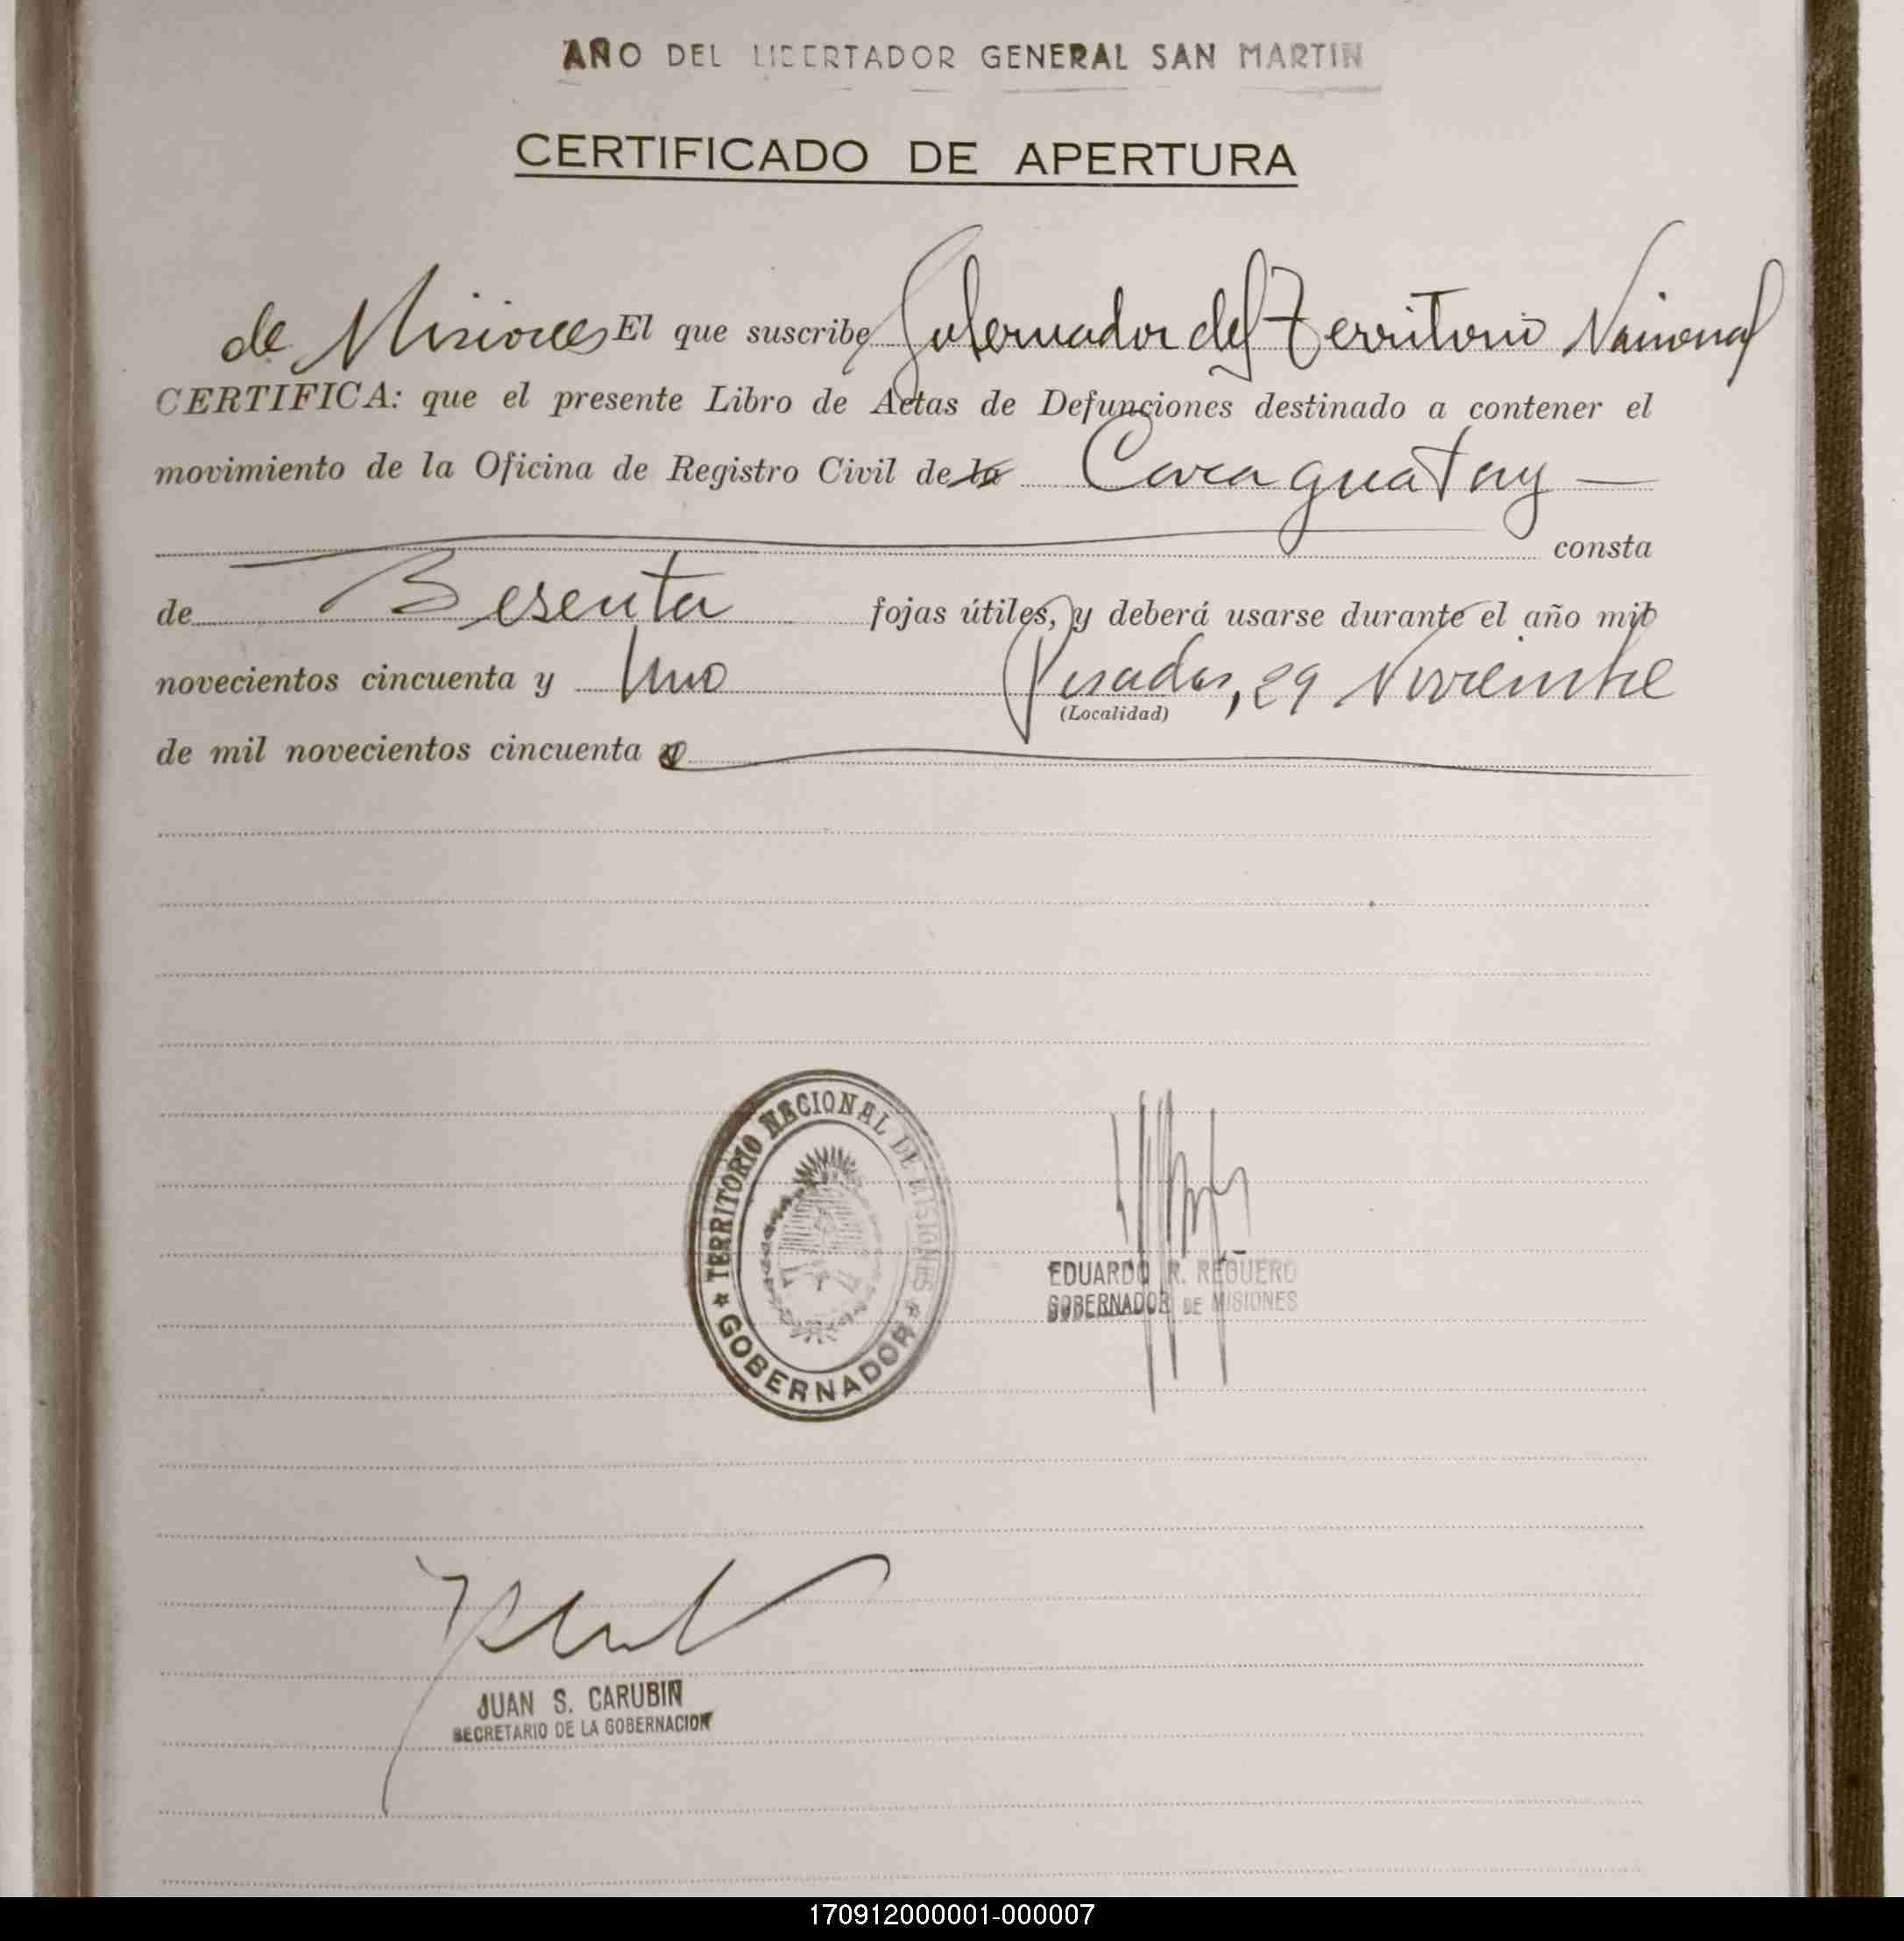 AÑO DEL LIBERTADOR GENERAL SAN MARTIN
CERTIFICADO DE APERTURA
de Misiones El que suscribe Gobernador del Territorio Nacional
CERTIFICA: que el presente Libro de Actas de Defunciones destinado a contener el
movimiento de la Oficina de Registro Civil de la Caraguatay
consta
de Sesenta fojas útiles, y deberá usarse durante el año mil
novecientos cincuenta y Uno Posadas, 29 Noviembre
(Localidad)
de mil novecientos cincuenta y
TERRITORIO NACIONAL DE MISIONES
GOBERNADOR
EDUARDO R. REGUERO
GOBERNADOR DE MISIONES
JUAN S. CARUBIN
SECRETARIO DE LA GOBERNACION
170912000001-000007